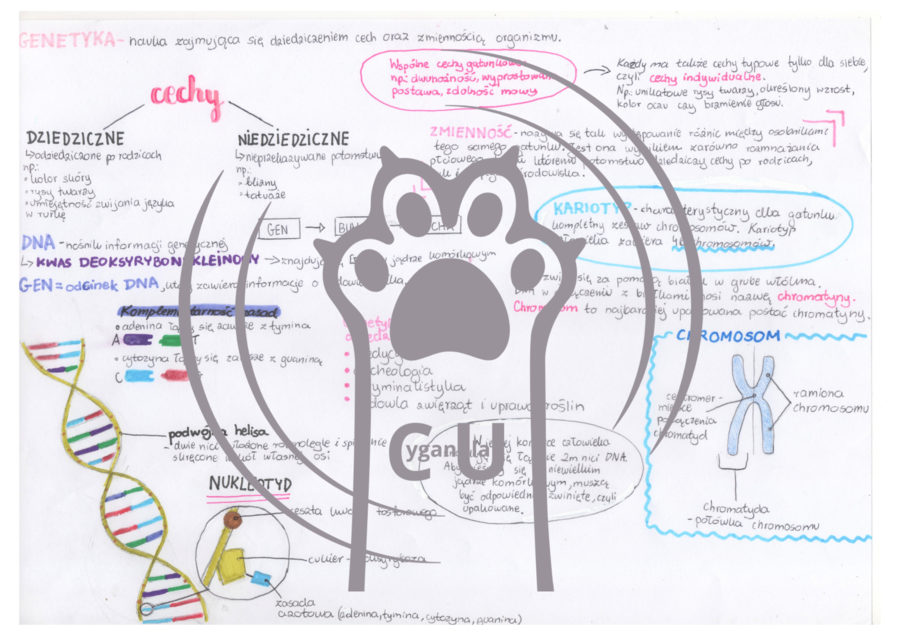 GENETYKA- nauka zajmująca się dziedziczeniem cech oraz zmiennością organizmu.
cechy
DZIEDZICZNE
↳odziedziczone po rodzicach
np:
• kolor skóry
• rysy twarzy
• umiejętność zwijania języka
w rurkę
NIEDZIEDZICZNE
↳nieprzekazywane potomstwu
np:
• blizny
• tatuaże
Wspólne cechy gatunkowe
np: dwunożność, wyprostowana
postawa, zdolność mowy
Każdy ma także cechy typowe tylko dla siebie,
czyli cechy indywidualne.
Np: unikatowe rysy twarzy, określony wzrost,
kolor oczu czy brzmienie głosu.
ZMIENNOŚĆ - nazywa się tak występowanie różnic między osobnikami
tego samego gatunku. Jest ona wynikiem zarówno rozmnażania
płciowego, któremu potomstwo dziedziczy cechy po rodzicach,
środowiska.
GEN →
KARIOTYP - charakterystyczny dla gatunku
kompletny zestaw chromosomów. Kariotyp
zawiera 46 chromosomów.
DNA - nośnik informacji genetycznej
↳ KWAS DEOKSYRYBONUKLEINOWY → znajduje jądrze komórkowym
GEN = odcinek DNA, który zawiera informacje o
się za pomocą białek w grube włókna.
DNA w połączeniu z białkami nosi nazwę chromatyny.
Chromosom to najbardziej upakowana postać chromatyny.
Komplementarność zasad
• adenina łączy się zawsze z tyminą
A T
• cytozyna łączy się zawsze z guaniną
C G
• archeologia
• kryminalistyka
• hodowla zwierząt i uprawa roślin
CHROMOSOM
centromer -
miejsce
połączenia
chromatyd
ramiona
chromosomu
chromatyda
- połówka chromosomu
podwójna helisa
- dwie nici ułożone równolegle i
skręcone wokół własnej osi
W jednej komórce człowieka
łącznie 2m nici DNA.
Aby się w niewielkim
jądrze komórkowym, muszą
być odpowiednio zwinięte, czyli
upakowane.
CU
yganula
NUKLEOTYD
reszta kwasu fosforowego
cukier - deoksyryboza
zasada
azotowa (adenina, tymina, cytozyna, guanina)